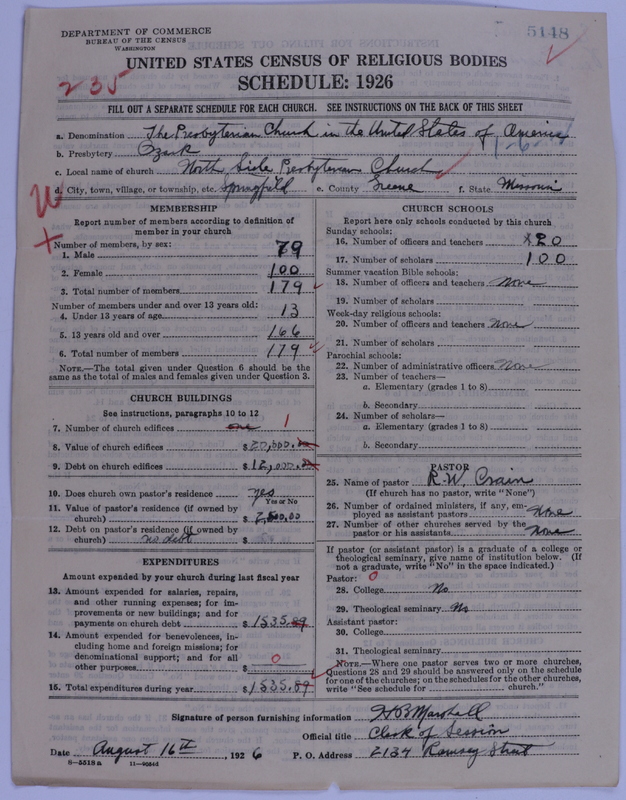 DEPARTMENT OF COMMERCE
BUREAU OF THE CENSUS
WASHINGTON
5148
UNITED STATES CENSUS OF RELIGIOUS BODIES
SCHEDULE: 1926
235
FILL OUT A SEPARATE SCHEDULE FOR EACH CHURCH. SEE INSTRUCTIONS ON THE BACK OF THIS SHEET
a. Denomination The Presbyterian Church in the United States of America
b. Presbytery Ozark
c. Local name of church North Side Presbyterian Church
d. City, town, village, or township, etc. Springfield e. County Greene f. State Missouri
MEMBERSHIP
Report number of members according to definition of
member in your church
Number of members, by sex:
1. Male 79
2. Female 100
3. Total number of members 179
Number of members under and over 13 years old:
4. Under 13 years of age 13
5. 13 years old and over 166
6. Total number of members 179
NOTE.—The total given under Question 6 should be the
same as the total of males and females given under Question 3.
CHURCH BUILDINGS
See instructions, paragraphs 10 to 12
7. Number of church edifices one 1
8. Value of church edifices $ 20,000.00
9. Debt on church edifices $ 12,000.00
10. Does church own pastor's residence yes
Yes or No
11. Value of pastor's residence (if owned by
church) $ 2,500.00
12. Debt on pastor's residence (if owned by
church) no debt $
EXPENDITURES
Amount expended by your church during last fiscal year
13. Amount expended for salaries, repairs,
and other running expenses; for im-
provements or new buildings; and for
payments on church debt $ 1535.89
14. Amount expended for benevolences, in-
cluding home and foreign missions; for
denominational support; and for all
other purposes $ 0
15. Total expenditures during year $ 1535.89
CHURCH SCHOOLS
Report here only schools conducted by this church
Sunday schools:
16. Number of officers and teachers 20
17. Number of scholars 100
Summer vacation Bible schools:
18. Number of officers and teachers None
19. Number of scholars
Week-day religious schools:
20. Number of officers and teachers None
21. Number of scholars
Parochial schools:
22. Number of administrative officers None
23. Number of teachers—
a. Elementary (grades 1 to 8)
b. Secondary
24. Number of scholars—
a. Elementary (grades 1 to 8)
b. Secondary
PASTOR
25. Name of pastor R. W. Crain
(If church has no pastor, write "None")
26. Number of ordained ministers, if any, em-
ployed as assistant pastors None
27. Number of other churches served by the
pastor or his assistants None
If pastor (or assistant pastor) is a graduate of a college or
theological seminary, give name of institution below. (If
not a graduate, write "No" in the space indicated.)
Pastor: 0
28. College No
29. Theological seminary No
Assistant pastor:
30. College
31. Theological seminary
NOTE.—Where one pastor serves two or more churches,
Questions 28 and 29 should be answered only on the schedule
for one of the churches; on the schedules for the other churches,
write "See schedule for church."
Signature of person furnishing information H B Marshall
Official title Clerk of Session
Date August 16th, 1926 P. O. Address 2134 Ramsey Street
8—5518a